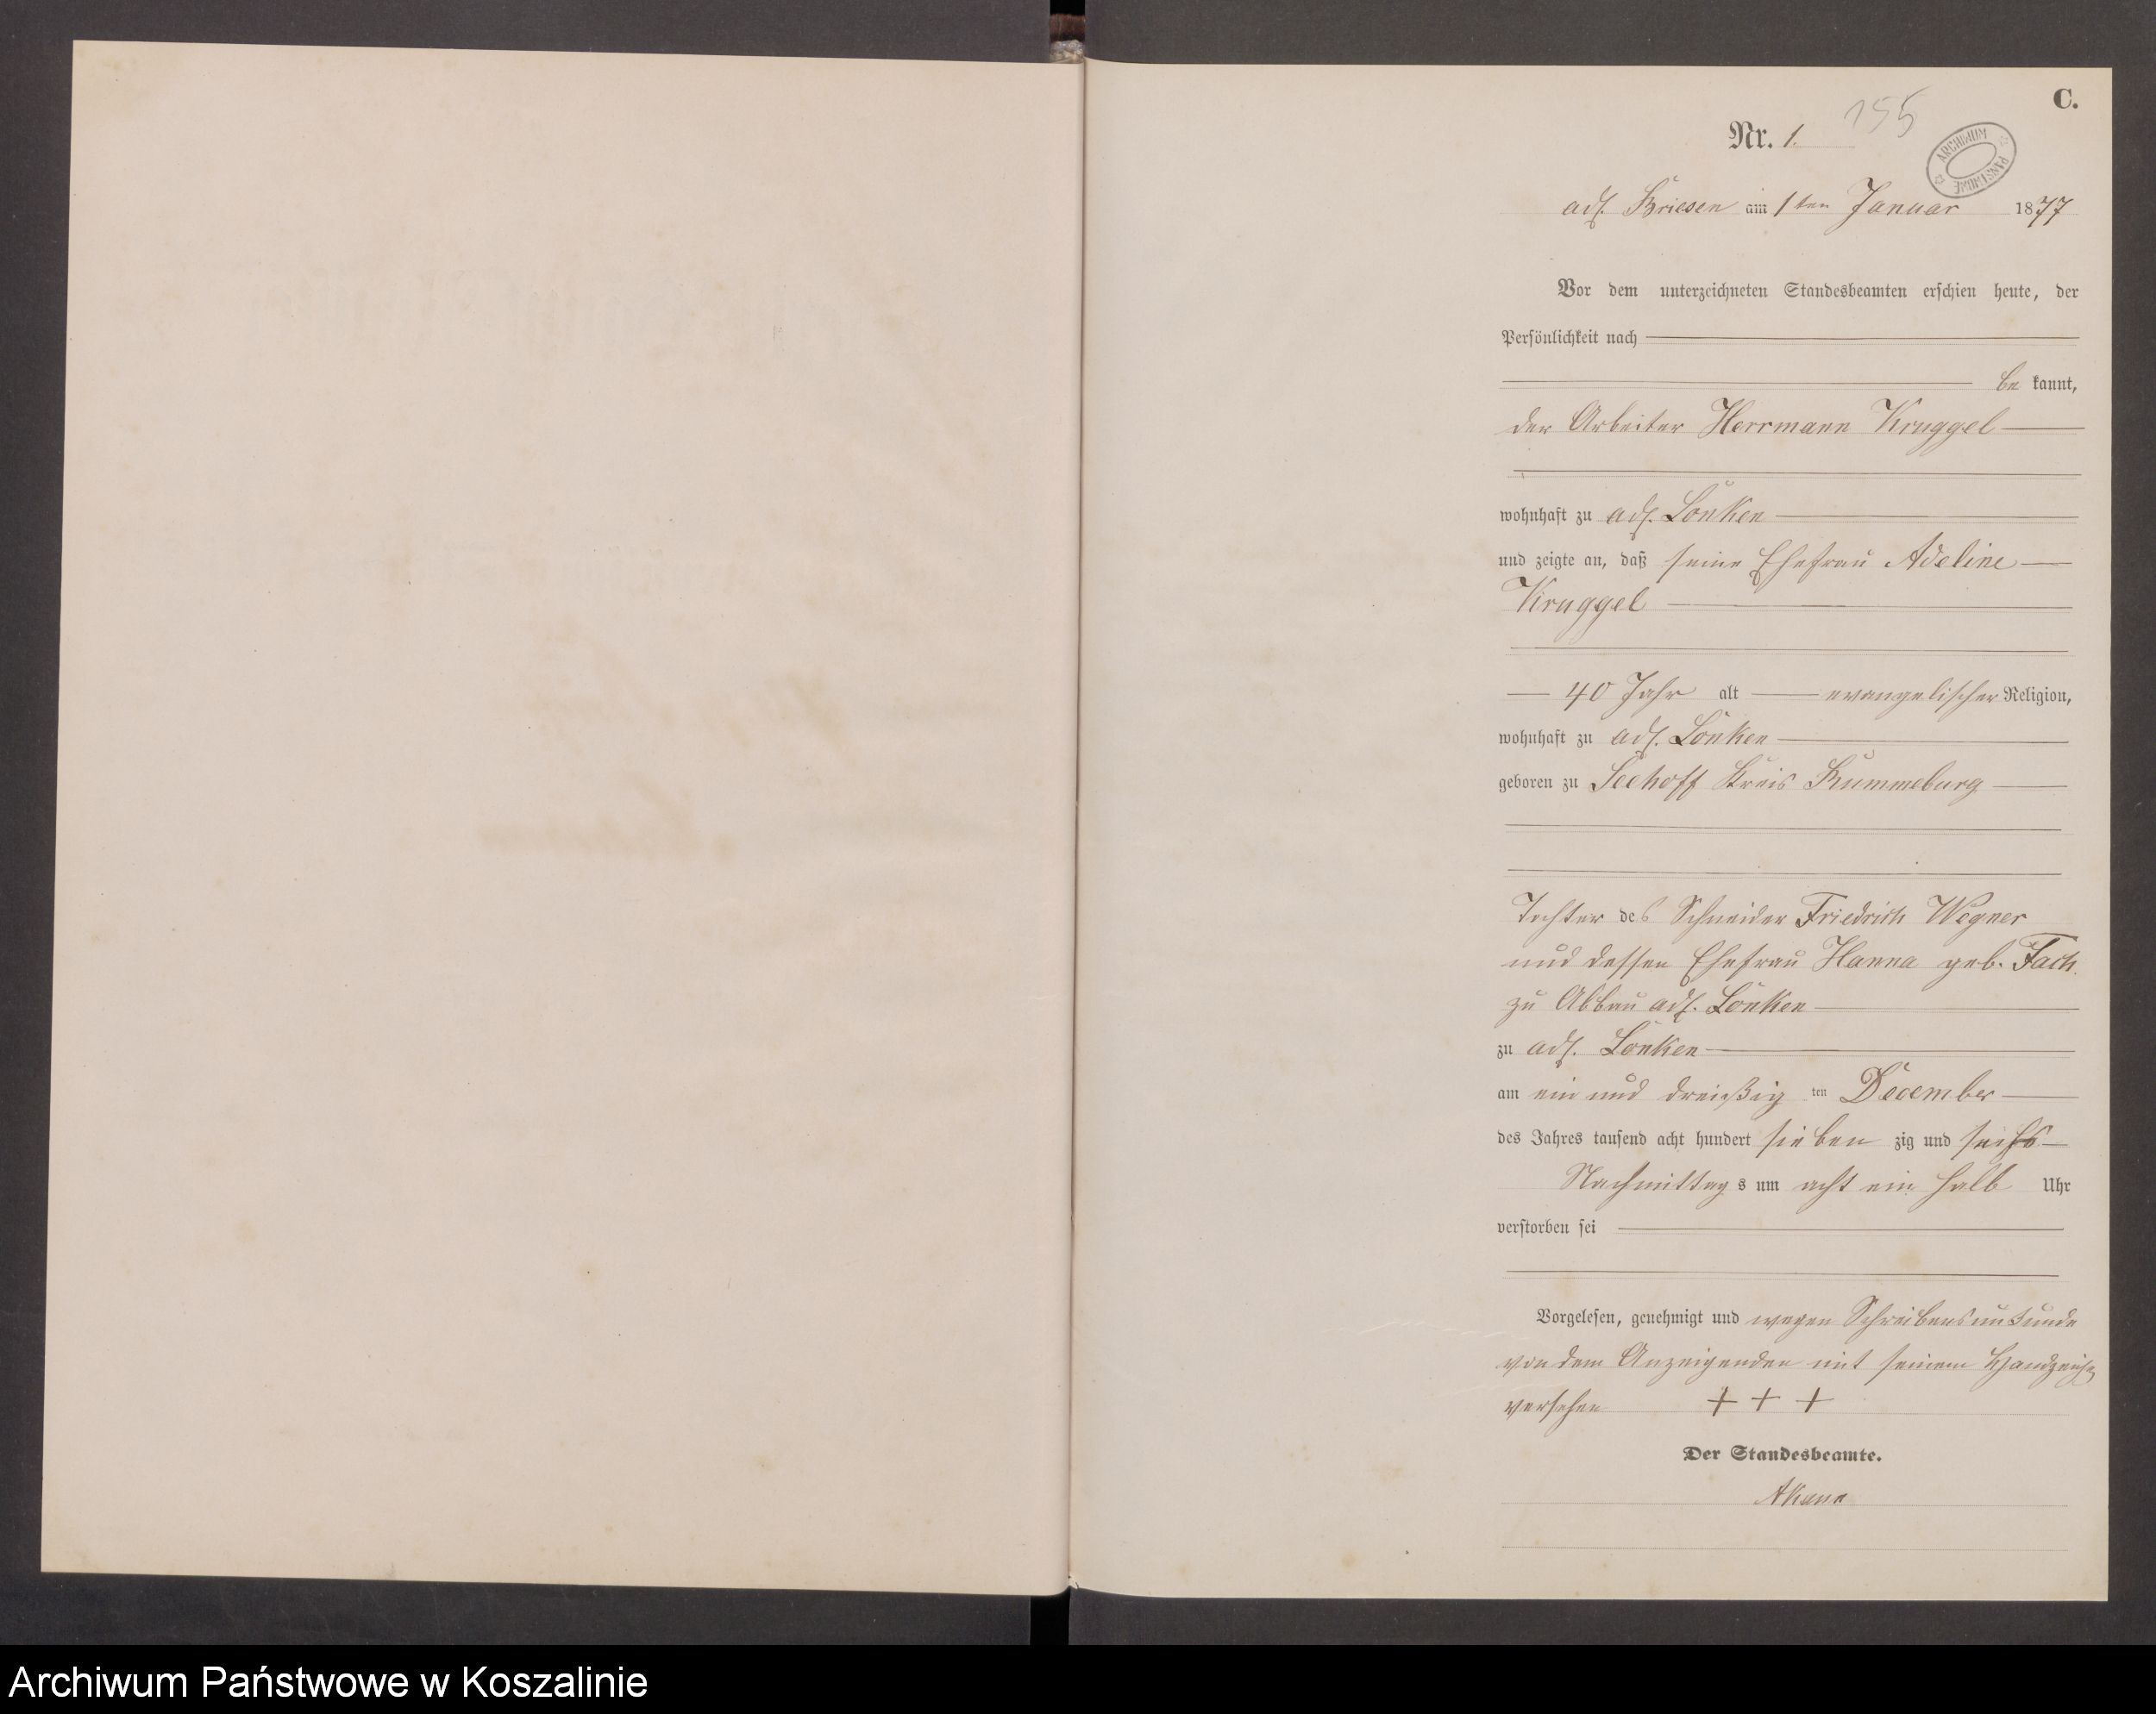 C.
155
Nr. 1.
ARCHIWUM PAŃSTWOWE
adl. Briesen am 1ten Januar 1877
Vor dem unterzeichneten Standesbeamten erschien heute, der
Persönlichkeit nach
be kannt,
der Arbeiter Herrmann Kruggel
wohnhaft zu adl. Lonken
und zeigte an, daß seine Ehefrau Adeline
Kruggel
40 Jahr alt evangelischer Religion,
wohnhaft zu adl. Lonken
geboren zu Seehoff Kreis Rummelburg
Tochter des Schneider Friedrich Wegner
und dessen Ehefrau Hanna geb. Fach
zu Abbau adl. Lonken
zu adl. Lonken
am ein und dreißig ten December
des Jahres tausend acht hundert sieben zig und sechs
Nachmittag s um acht ein halb Uhr
verstorben sei
Vorgelesen, genehmigt und wegen Schreibensunkunde
von dem Anzeigenden mit seinem Handzeichen
versehen + + +
Der Standesbeamte.
Archiwum Państwowe w Koszalinie